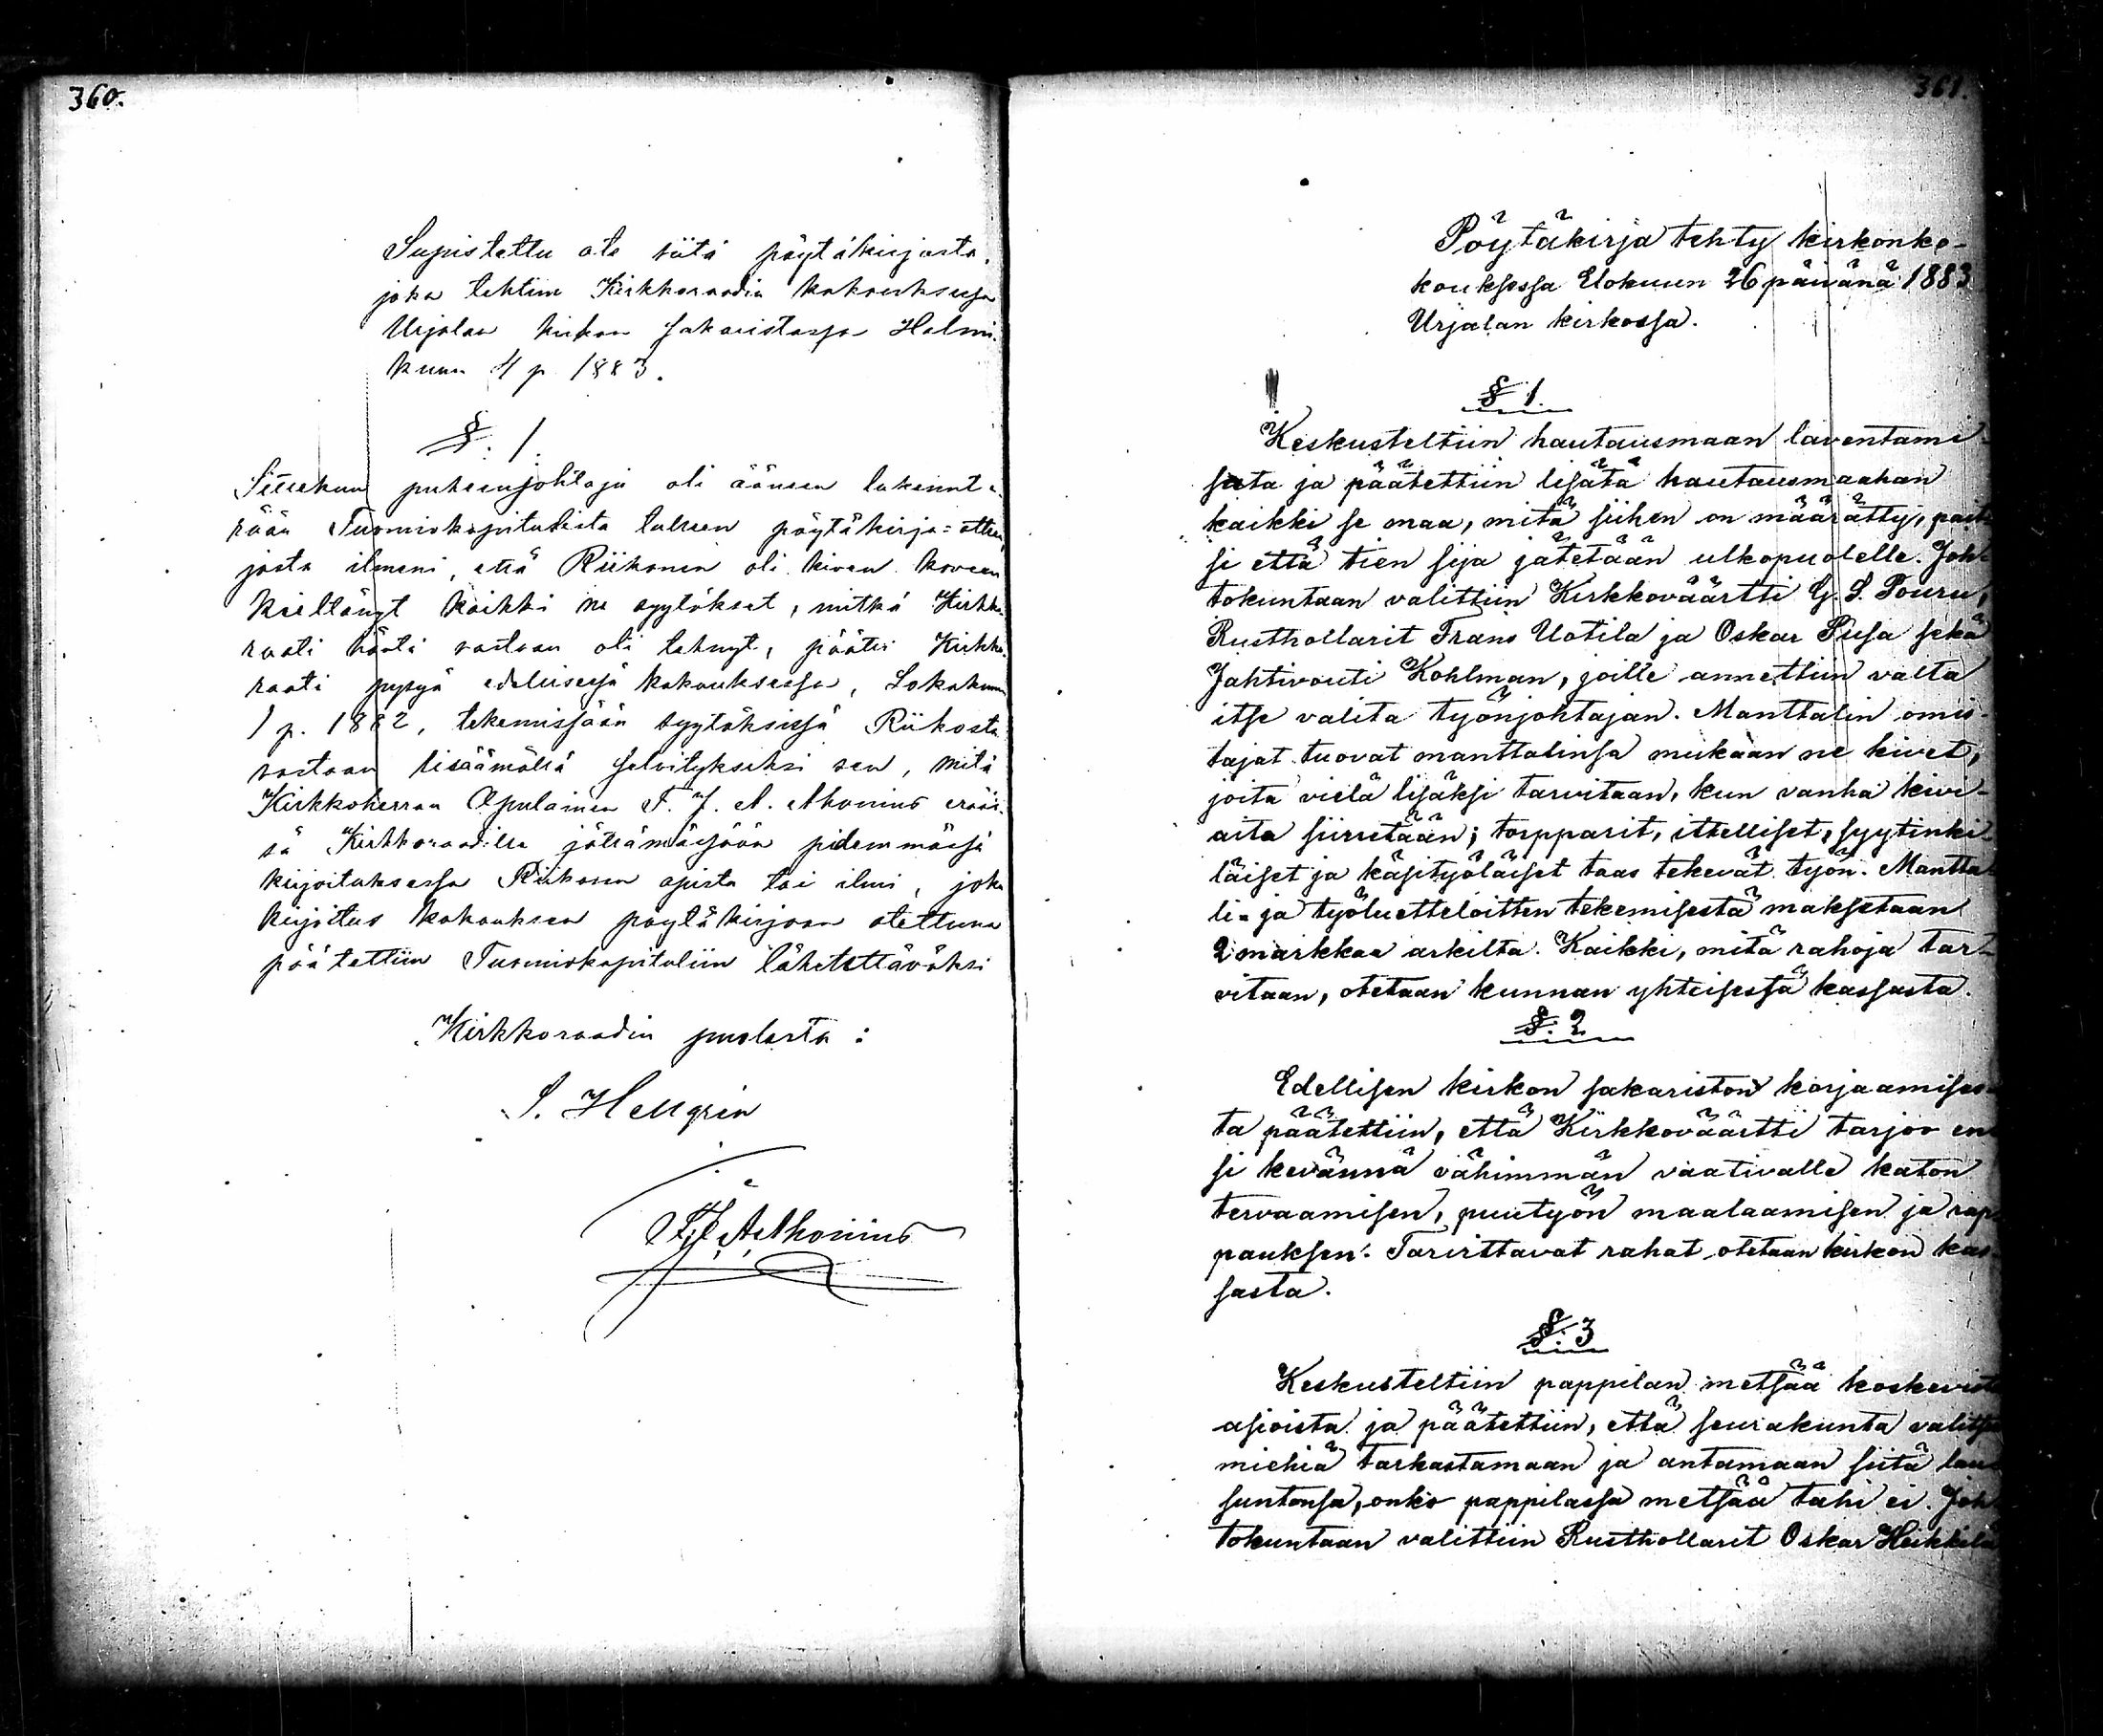 360.
Supistettu ote siitä pöytäkirjasta,
joka tehtiin Kirkkoraadin kokouksessa
Urjalan kirkon sakaristossa Helmi-
kuun 4 p 1883.
§. 1.
Sittekun puheenjohtaja oli ääneen lukenut e-
rään Tuomiokapitulista tulleen pöytäkirja=otteen,
josta ilmeni, että Riikonen oli kiven kovaan
kieltänyt kaikki ne syytökset, mitkä Kirkko-
raati häntä vastaan oli tehnyt, päätti Kirkko-
raati pysyä edellisessä kokouksessa, Lokakuun
1 p. 1882, tekemissään syytöksissä Riikosta
vastaan lisäämällä selvitykseksi sen, mitä
Kirkkoherran Apulainen F. J. A. Ahonius erääs-
sä Kirkkoraadille jättämässään pidemmässä
kirjoituksessa Riikosen opista toi ilmi, joka
kirjoitus kokouksen pöytäkirjaan otettuna
päätettiin Tuomiokapituliin lähetettäväksi
Kirkkoraadin puolesta:
S. Hellgrén
F. J. A. Ahonius
361.
Pöytäkirja tehty kirkonko-
kouksessa Elokuun 26 päivänä 1883
Urjalan kirkossa.
§ 1.
Keskusteltiin hautausmaan laventami-
sesta ja päätettiin lisätä hautausmaahan
kaikki se maa, mitä siihen on määrätty, pait-
si että tien sija jätetään ulkopuolelle. Joh-
tokuntaan valittiin Kirkkoväärtti G. S. Pouru,
Rusthollarit Frans Uotila ja Oskar Pusa sekä
Jahtivouti Kohlman, joille annettiin valta
itse valita työnjohtajan. Manttalin omis-
tajat tuovat manttalinsa mukaan ne kivet,
joita vielä lisäksi tarvitaan, kun vanha kivi-
aita siirretään; torpparit, ittelliset, syytinki-
läiset ja käsityöläiset taas tekevät työn. Mantta-
li= ja työluetteloitten tekemisestä maksetaan
2 markkaa arkilta. Kaikki, mitä rahoja tar-
vitaan, otetaan kunnan yhteisestä kassasta.
§. 2
Edellisen kirkon sakariston korjaamises-
ta päätettiin, että Kirkkoväärtti tarjoo en-
si kevännä vähimmän vaativalle katon
tervaamisen, puutyön maalaamisen ja rap-
pauksen. Tarvittavat rahat otetaan kirkon kas-
sasta.
§. 3
Keskusteltiin pappilan metsää koskevista
asioista ja päätettiin, että seurakunta valitsee
miehiä tarkastamaan ja antamaan siitä lau-
suntonsa, onko pappilassa metsää tahi ei. Joh-
tokuntaan valittiin Rusthollarit Oskar Heikkilä